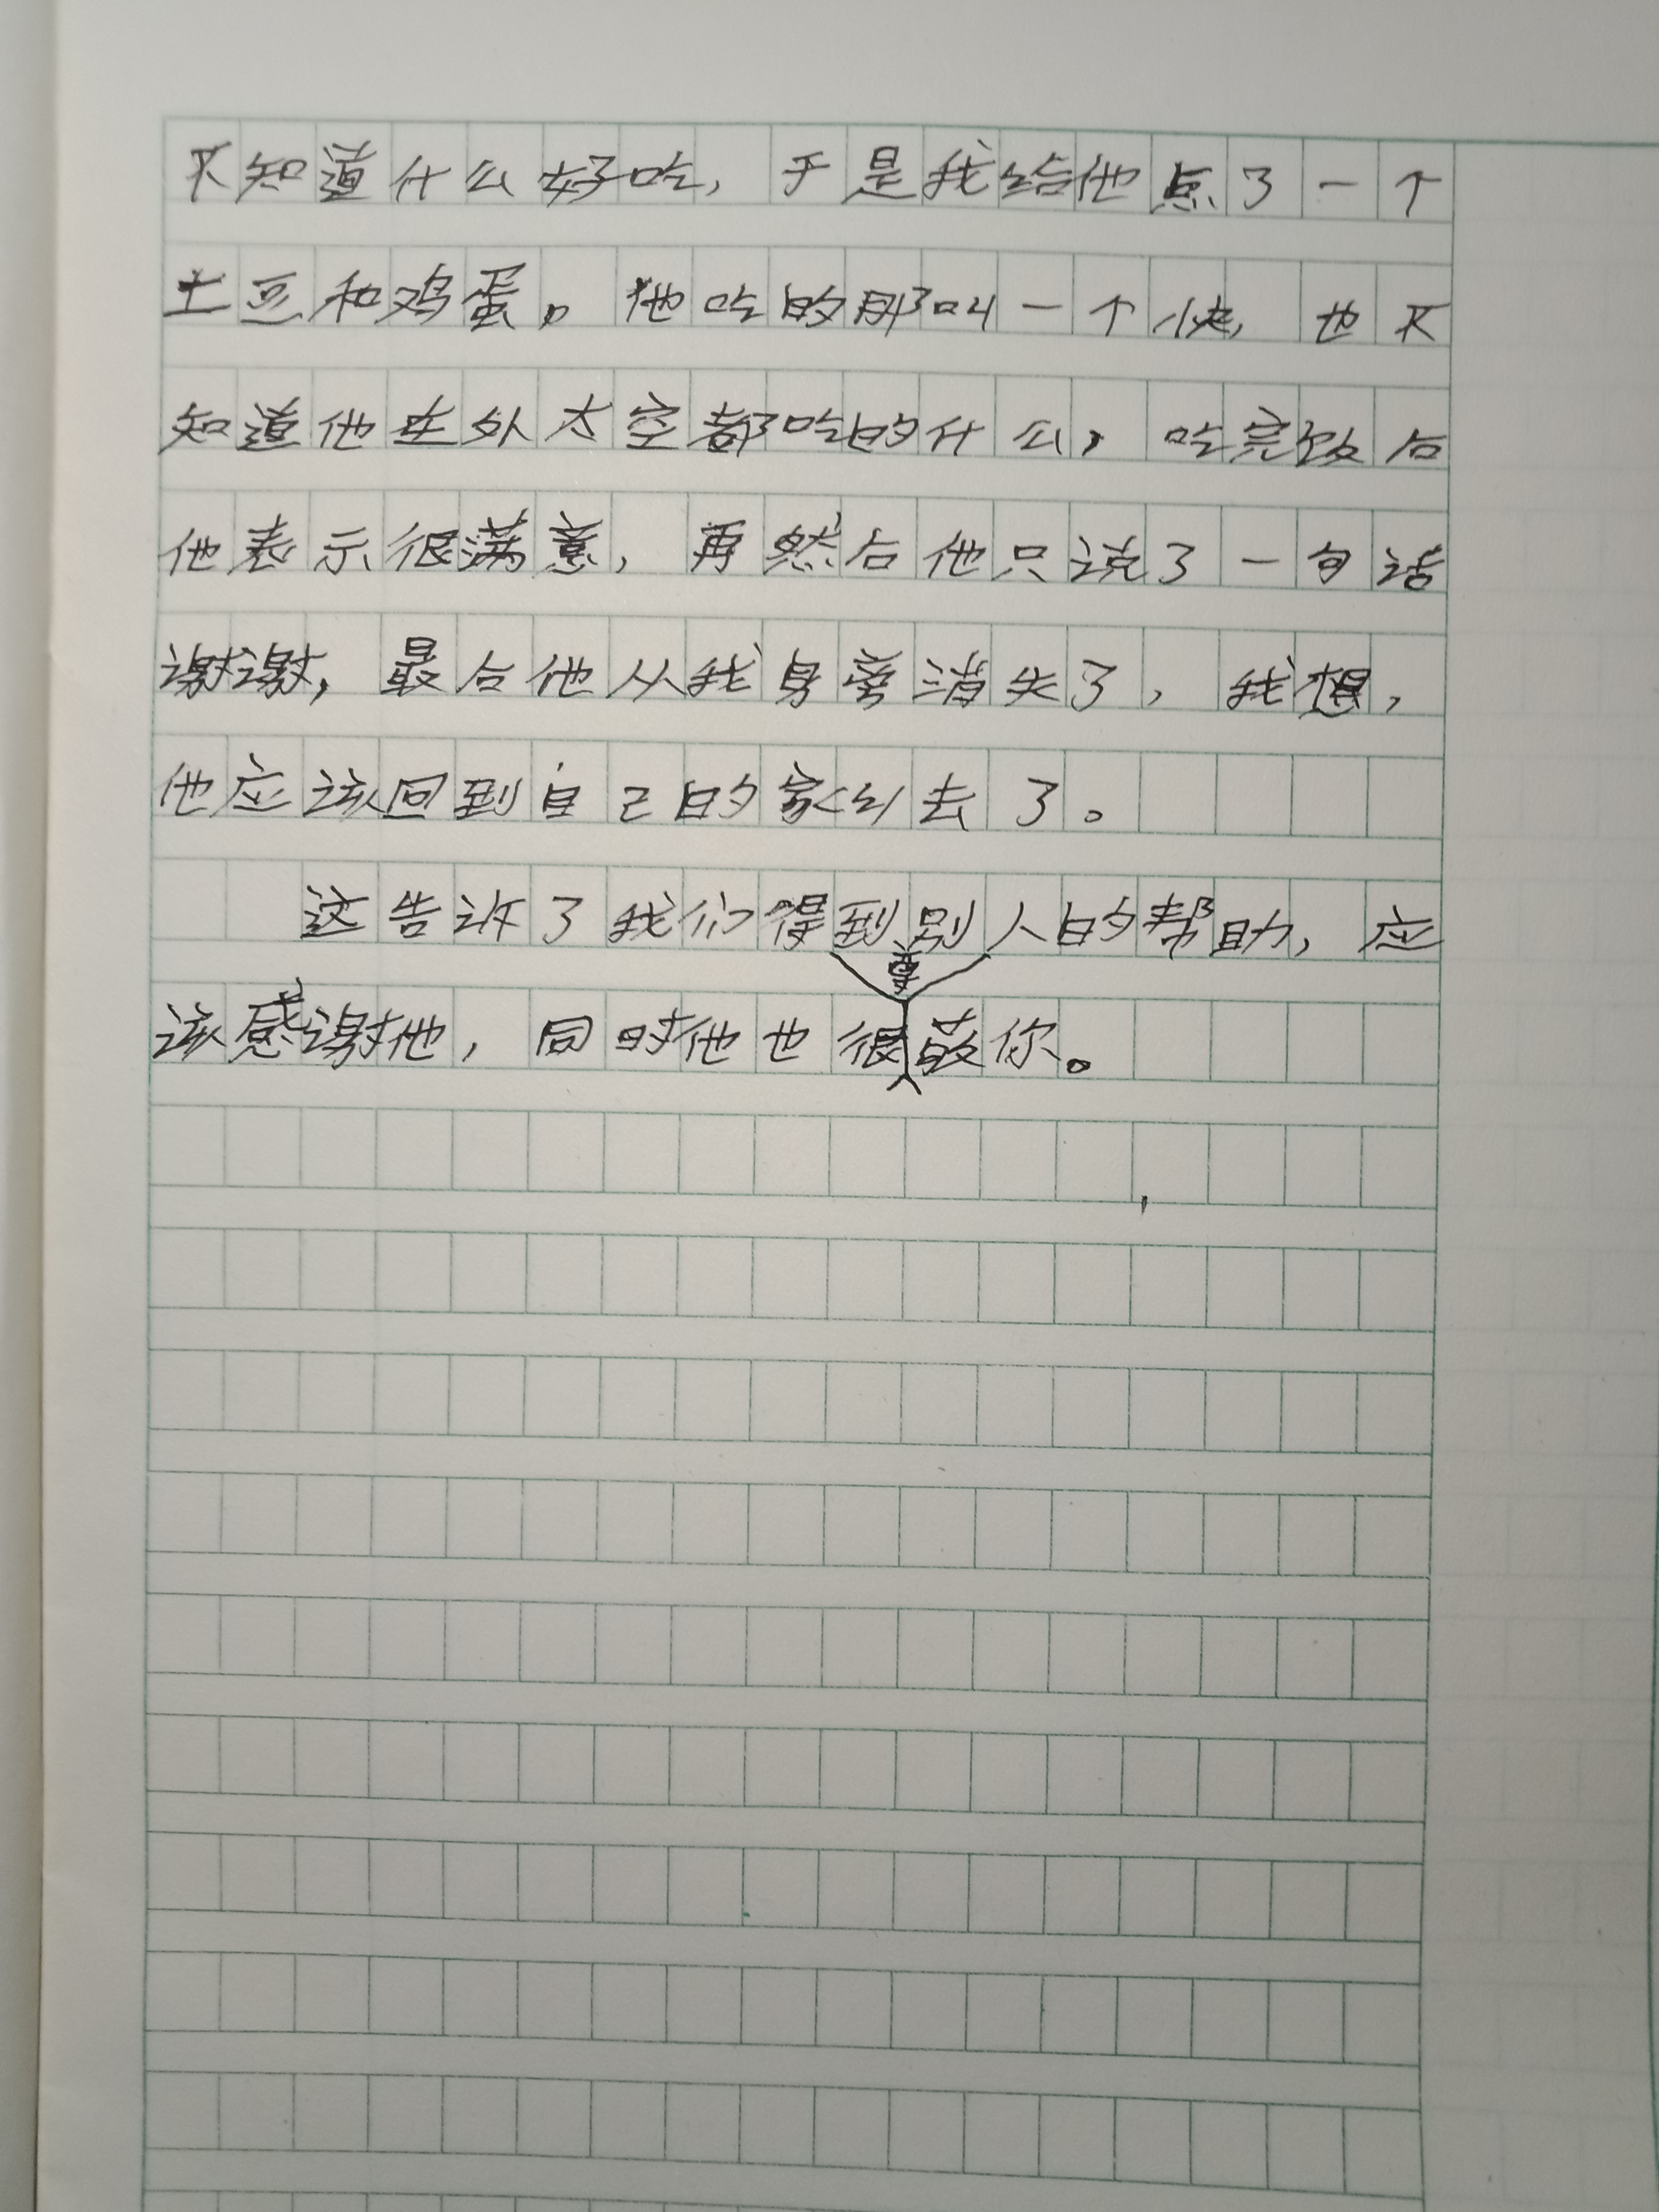 不知道什么好吃，于是我给他点了一个
土豆和鸡蛋。他吃的那叫一个快，也不
知道他在外太空都吃的什么，吃完饭后
他表示很满意，再然后他只说了一句话
谢谢，最后他从我身旁消失了，我想，
他应该回到自己的家乡去了。
这告诉了我们得到别人的帮助，应
该感谢他，同时他也很尊敬你。